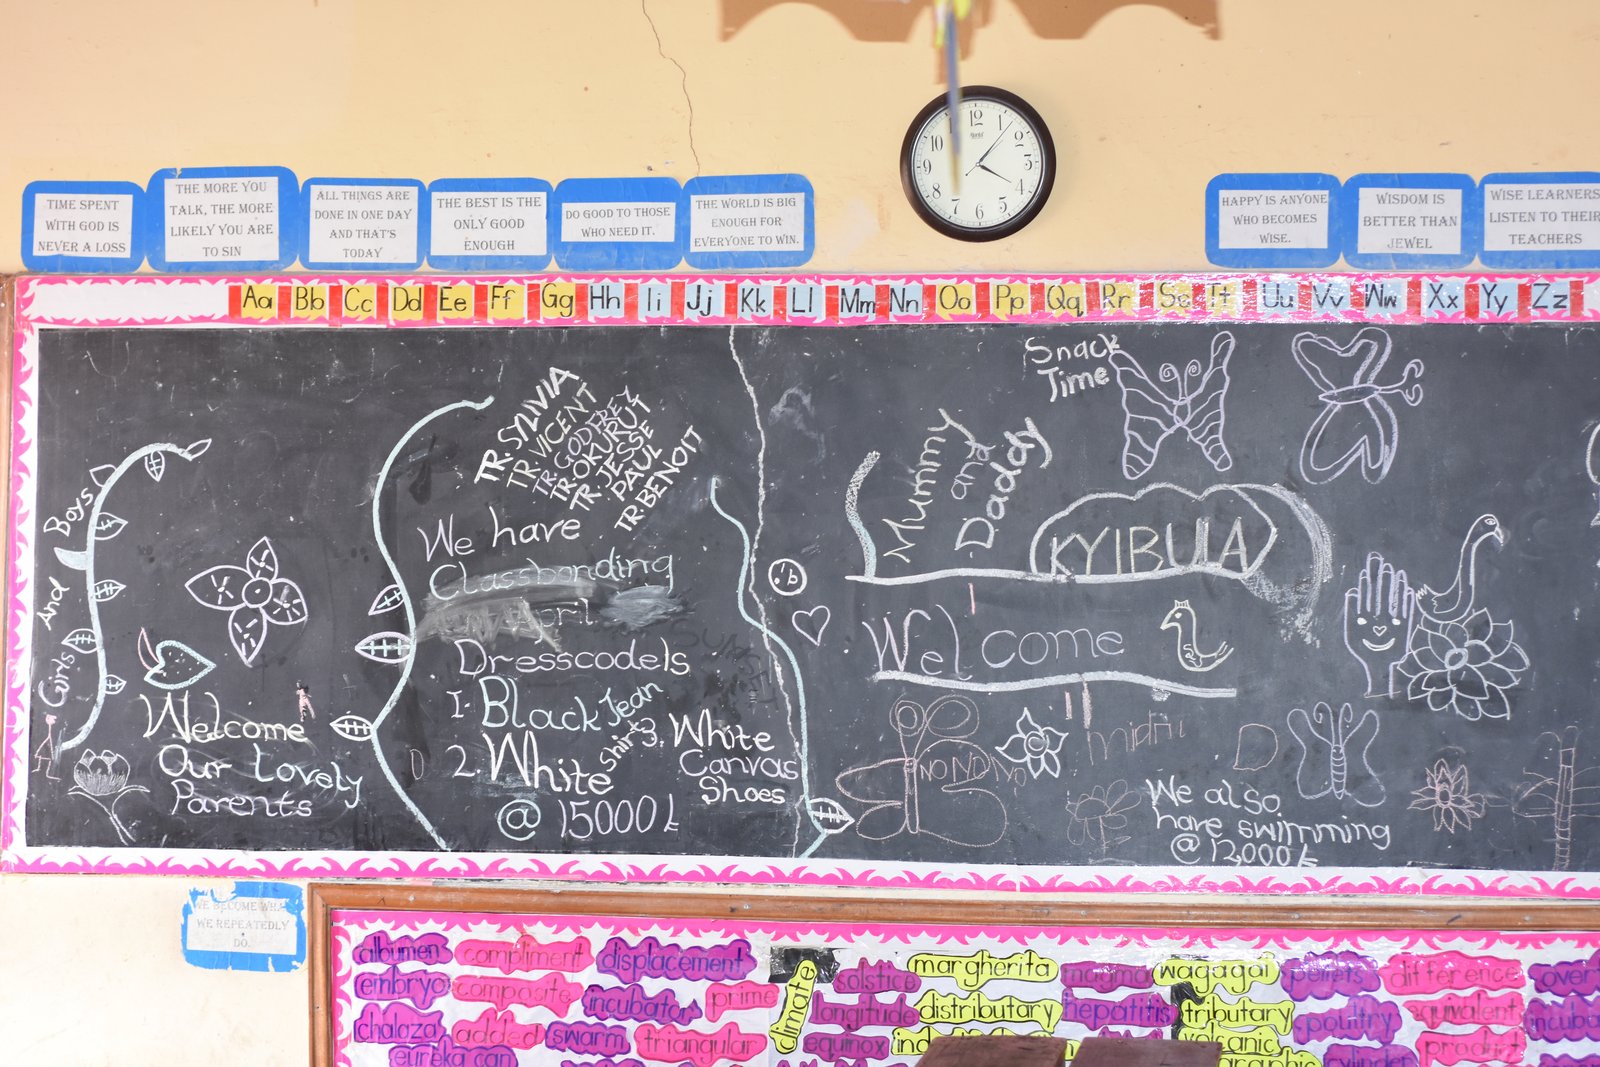 TIME SPENT
WITH GOD IS
NEVER A LOSS
THE MORE YOU
TALK, THE MORE
LIKELY YOU ARE
TO SIN
ALL THINGS ARE
DONE IN ONE DAY
AND THAT'S
TODAY
THE BEST IS THE
ONLY GOOD
ENOUGH
DO GOOD TO THOSE
WHO NEED IT.
THE WORLD IS BIG
ENOUGH FOR
EVERYONE TO WIN.
12
1
2
3
4
5
6
7
8
9
10
HAPPY IS ANYONE
WHO BECOMES
WISE.
WISDOM IS
BETTER THAN
JEWEL
WISE LEARNERS
LISTEN TO THEIR
TEACHERS
Aa Bb Cc Dd Ee Ff Gg Hh Ii Jj Kk Ll Mm Nn Oo Pp Qq Rr Ss Tt Uu Vv Ww Xx Yy Zz
Boys
And
Girls
Welcome
Our Lovely
Parents
TR. SYLIVIA
TR VICENT
TR GODFREY
TR OKURUT
TR. JESSE
PAUL
TR BENOIT
We have
Classbonding
April
Dresscodels
1. Black Jean
2. White Shirt
3. White
Canvas
Shoes
@ 15000k
Snack
Time
Mummy
and
Daddy
KYIBULA
Welcome
NO NO NO
D
We also
have swimming
@ 12,000k
WE REPEATEDLY
DO.
albumen compliment displacement
embryo composite incubator prime
chalaza added swarm triangular
eureka can
climate
solstice margherita magma wagagai pellets difference
longitude distributary hepatitis tributary poultry equivalent
equinox volcanic cylinder product